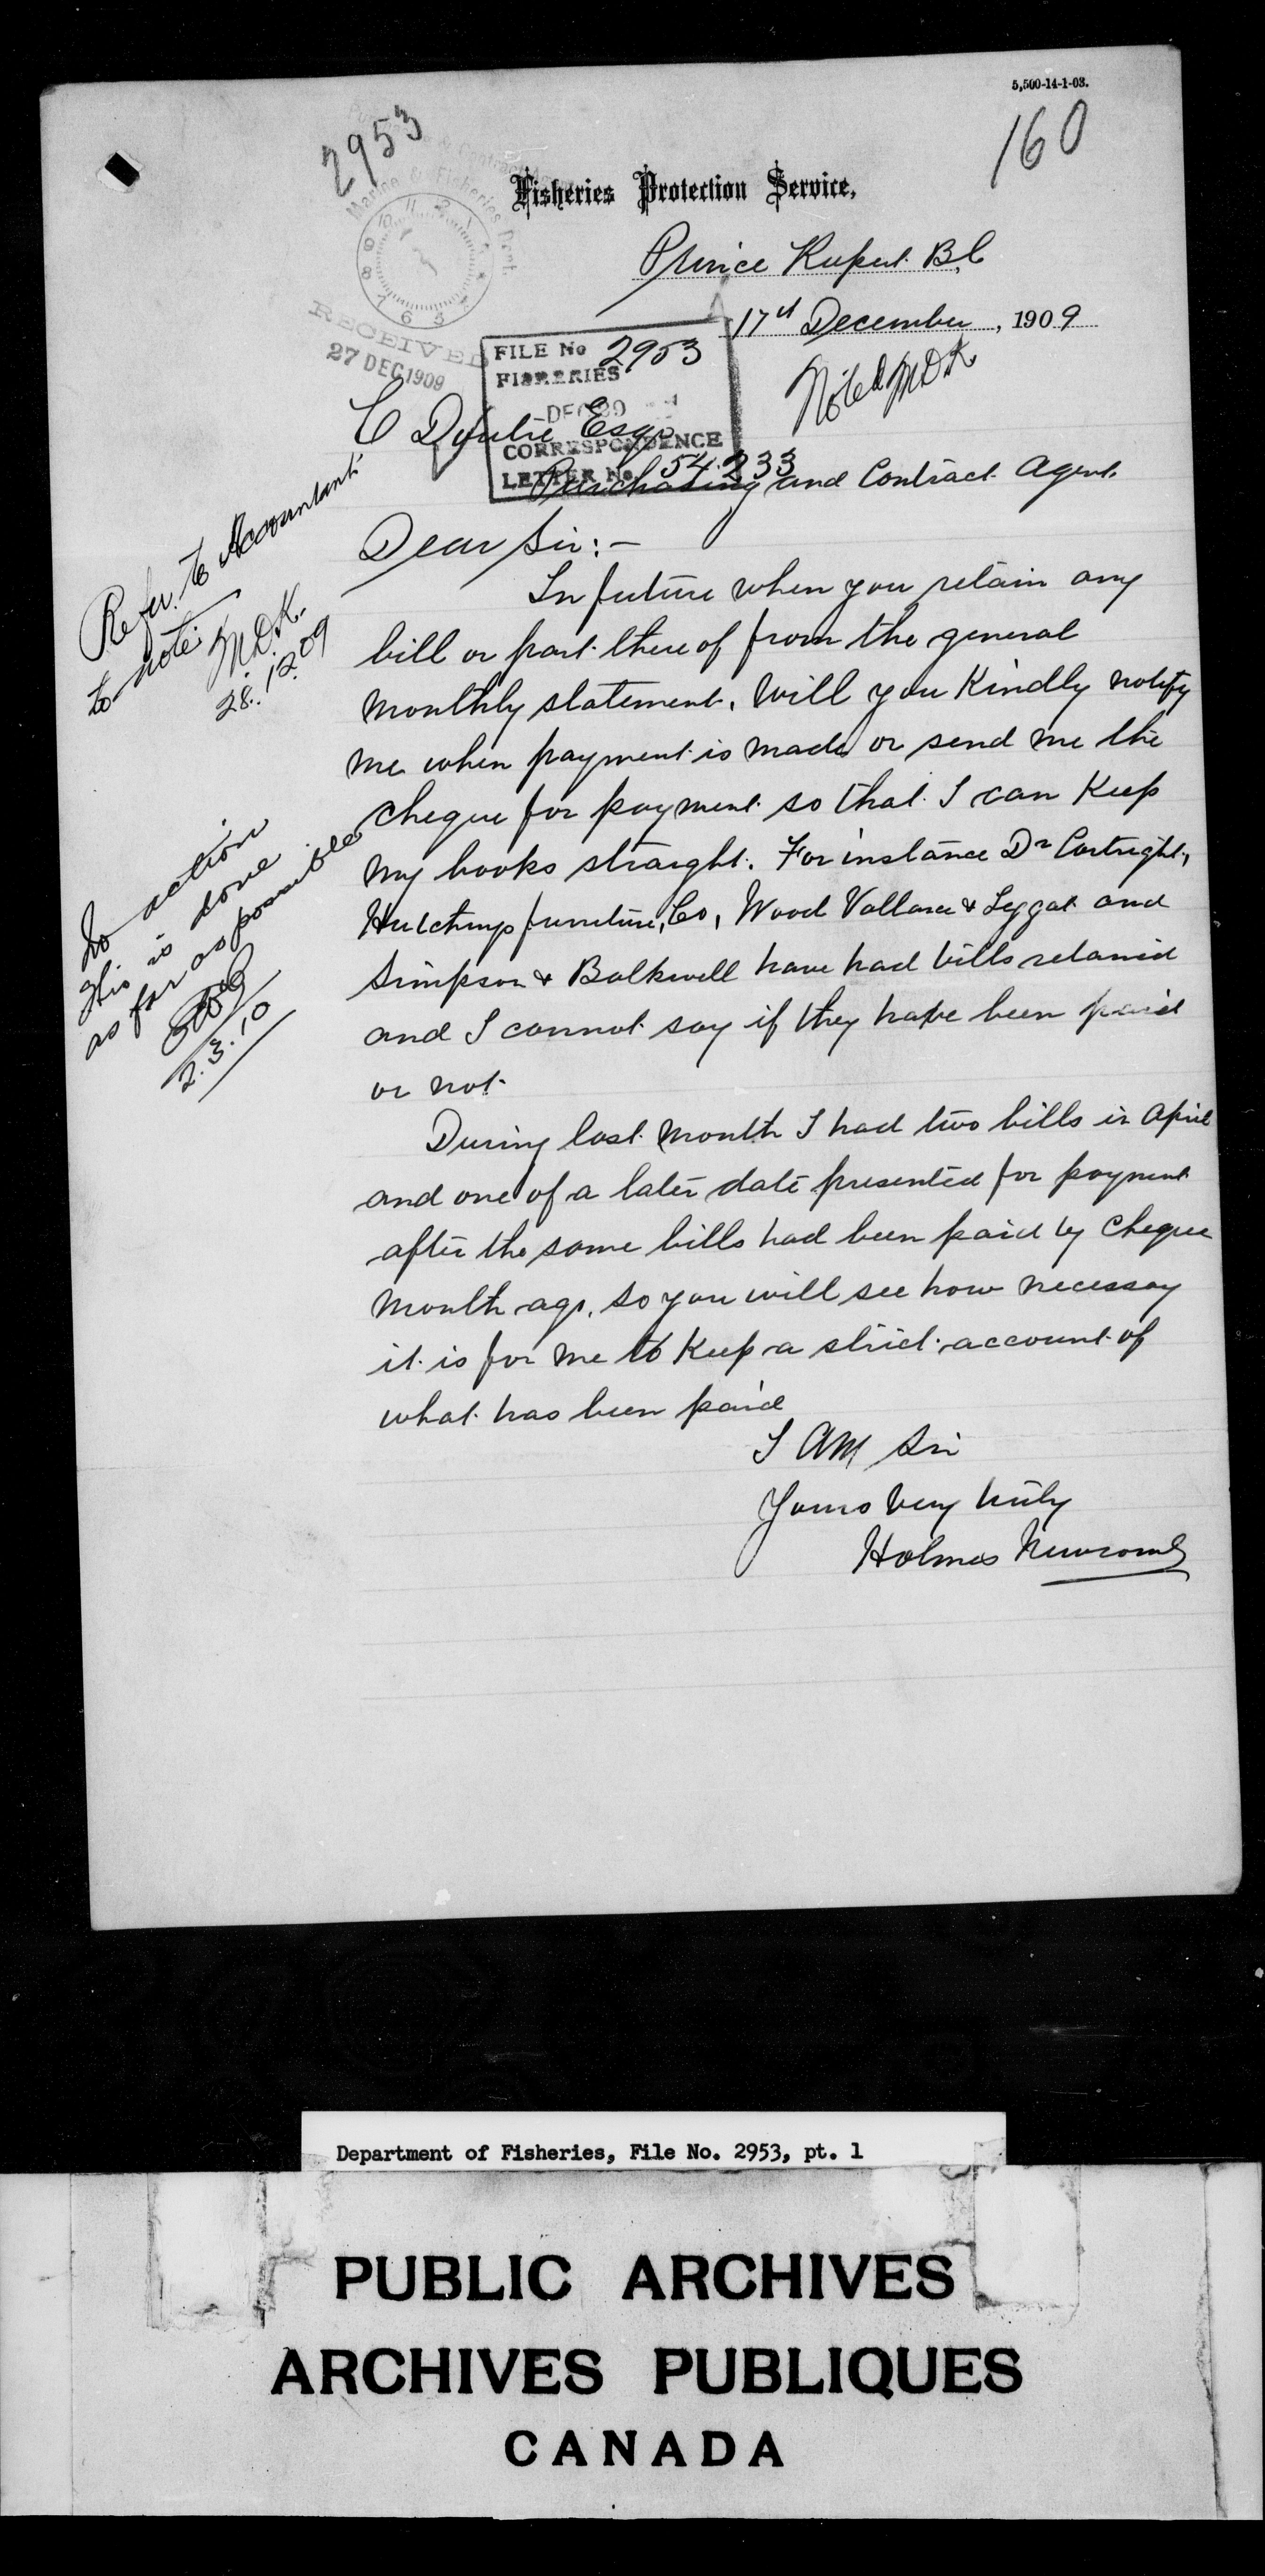 5,500-14-1-03.
160
2953
Marine & Fisheries Dept.
11 2 1
10
9
8
7 6 5
RECEIVED
27 DEC 1909
Fisheries Protection Service,
Prince Rupert B.C
17th December, 1909
FILE No 2953
FISHERIES
DEC 30
CORRESPONDENCE
LETTER No. 54233
Noted M.D.K
C Doutre Esqr
Purchasing and Contract Agent.
Dear Sir:-
In future when you retain any
bill or part there of from the general
monthly statement, will you Kindly notify
me when payment is made or send me the
cheque for payment so that I can Keep
my books straight. For instance Dr Cartright,
Hutchings furniture, Co, Wood Vallance & Leggat and
Simpson & Balkwell have had bills retained
and I cannot say if they have been paid
or not.
During last month I had two bills in April
and one of a later date presented for payment
after the same bills had been paid by cheque
month ago, so you will see how necessay
it is for me to Keep a strict account of
what has been paid
I AM Sir
Yours Very truly
Holmes Newcomb
Refer. to Accountant
to note
M.D.K.
28.12.09
No action
this is done
as far as possible
2.3.10
Department of Fisheries, File No. 2953, pt. 1
PUBLIC ARCHIVES
ARCHIVES PUBLIQUES
CANADA